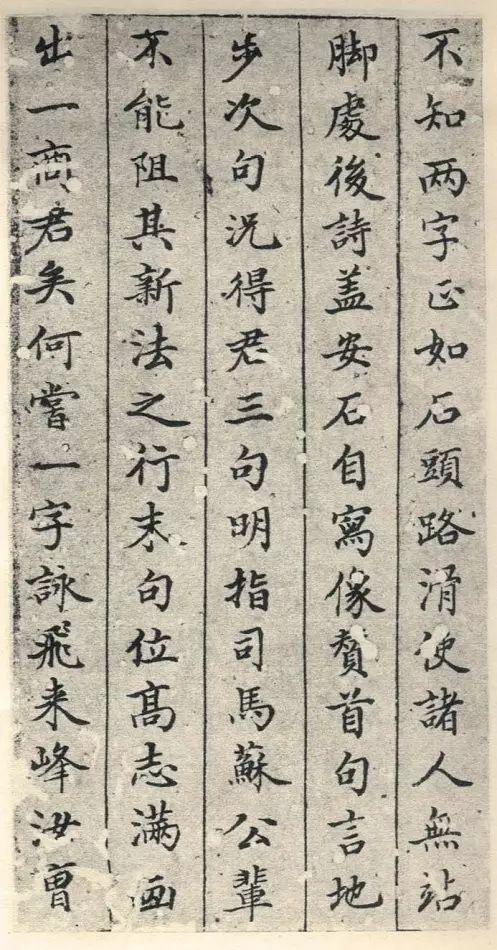 不知两字正如石頭路滑使諸人無站
脚處後詩盖安石自寫像賛首句言地
步次句況得君三句明指司馬蘇公輩
不能阻其新法之行末句位高志满画
出一商君矣何嘗一字詠飛来峰汝曹